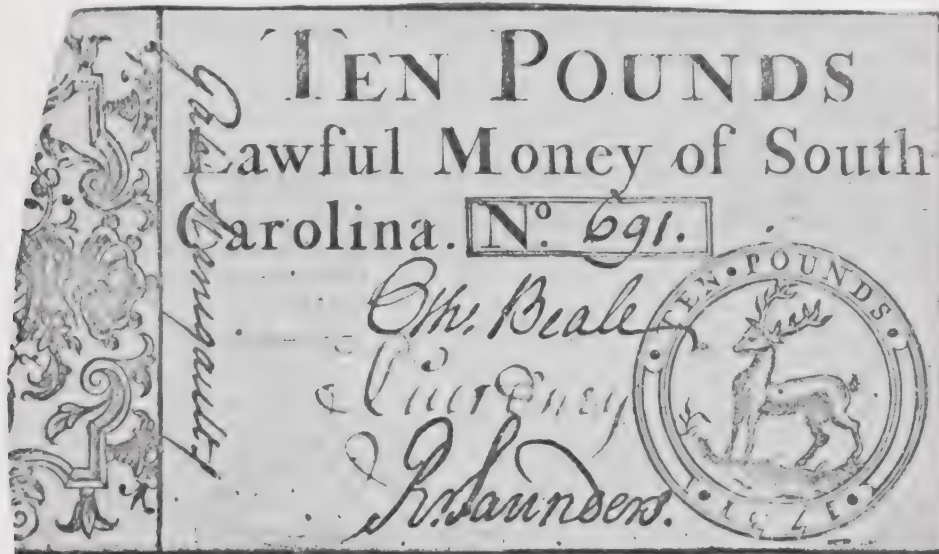 TEN POUNDS
Lawful Money of South
Carolina. No. 691.
Othr. Beale
R. Saunders.
TEN • POUNDS